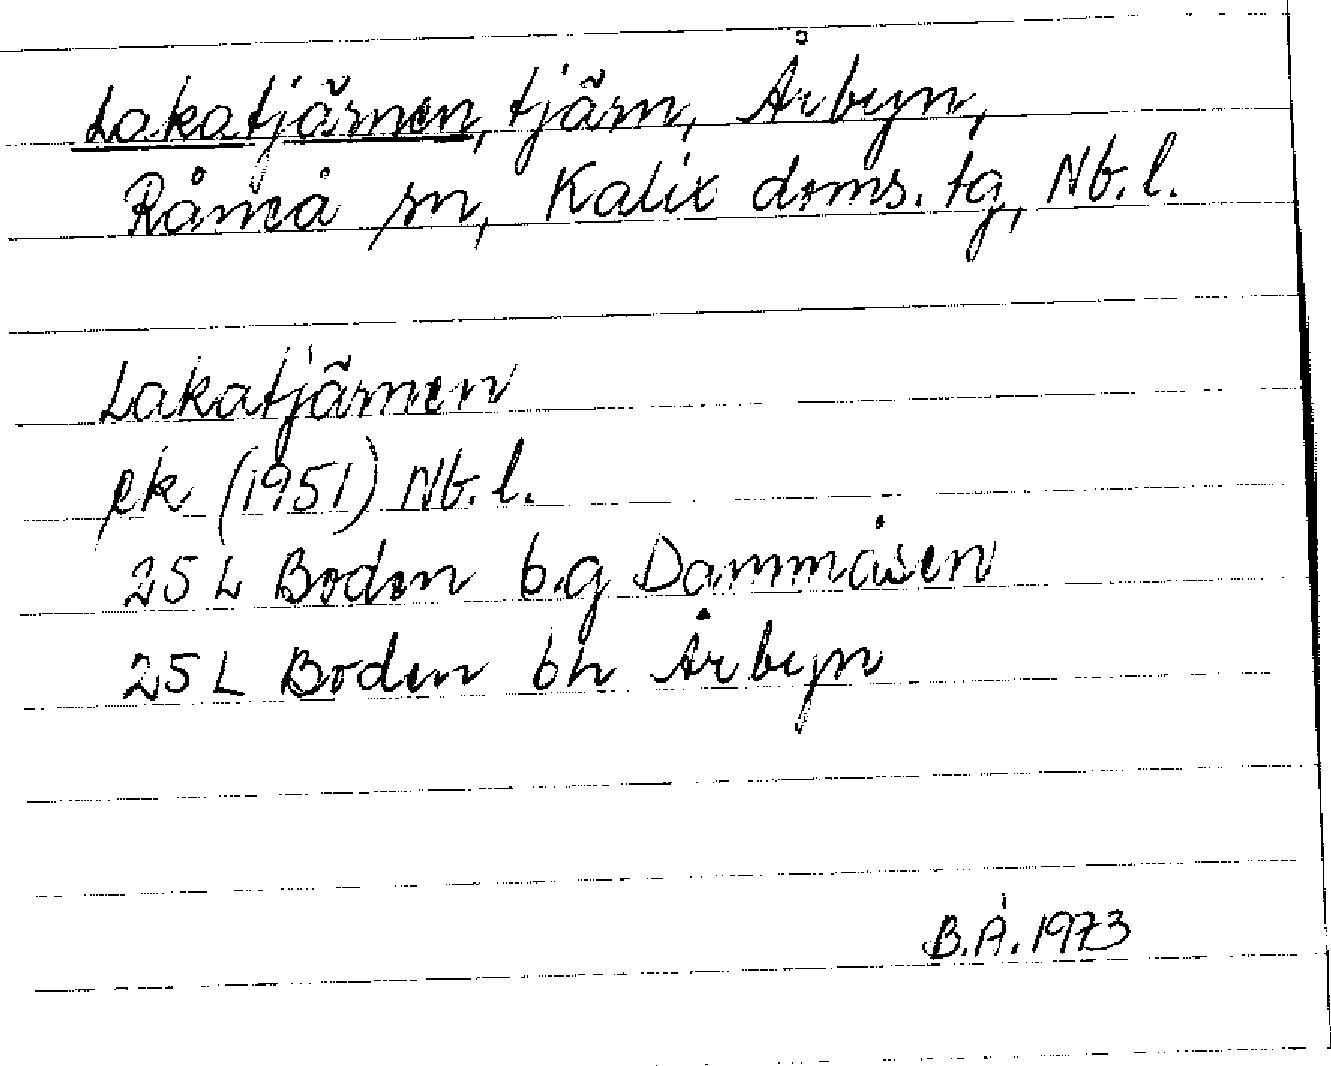 Lakatjärnen, tjärn, Årbyn,
Råneå sn, Kalix doms. tg, Nb. l.
Lakatjärnen
ek (1951) Nb. l.
25 L Boden b.g Dammåsen
25 L Boden bh Årbyn
B.Å. 1973